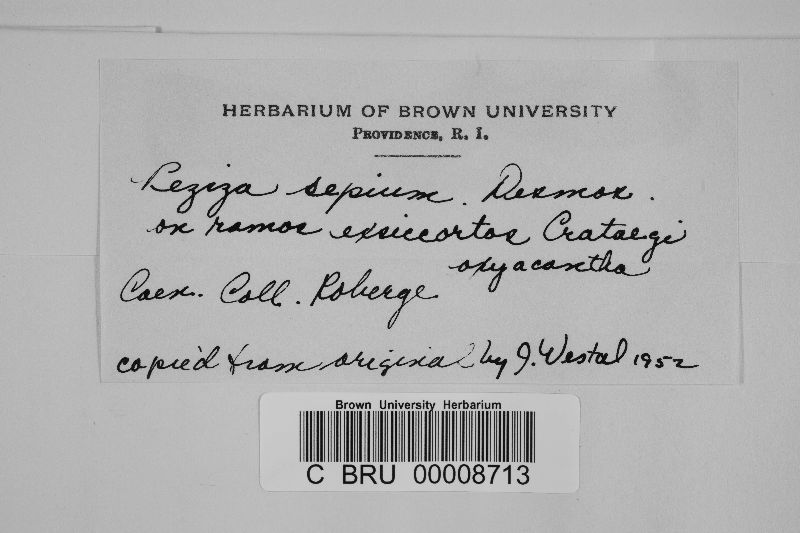 HERBARIUM OF BROWN UNIVERSITY
PROVIDENCE, R. I.
Peziza sepium. Desmox.
on ramos exsiccortos Crataegi
oxyacantha
Caen. Coll. Roberge
copied from original by J. Westal 1952
Brown University Herbarium
C BRU 00008713